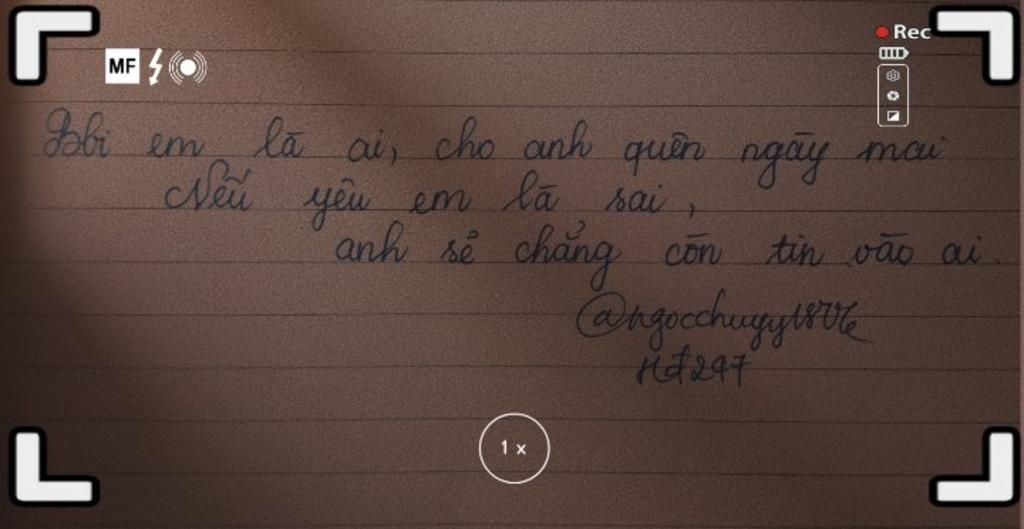 MF
Rec
Bbi em là ai, cho anh quên ngày mai
Nếu yêu em là sai,
anh sẻ chẳng còn tin vào ai.
@ngocchuyy1806
HĐ247
1 x